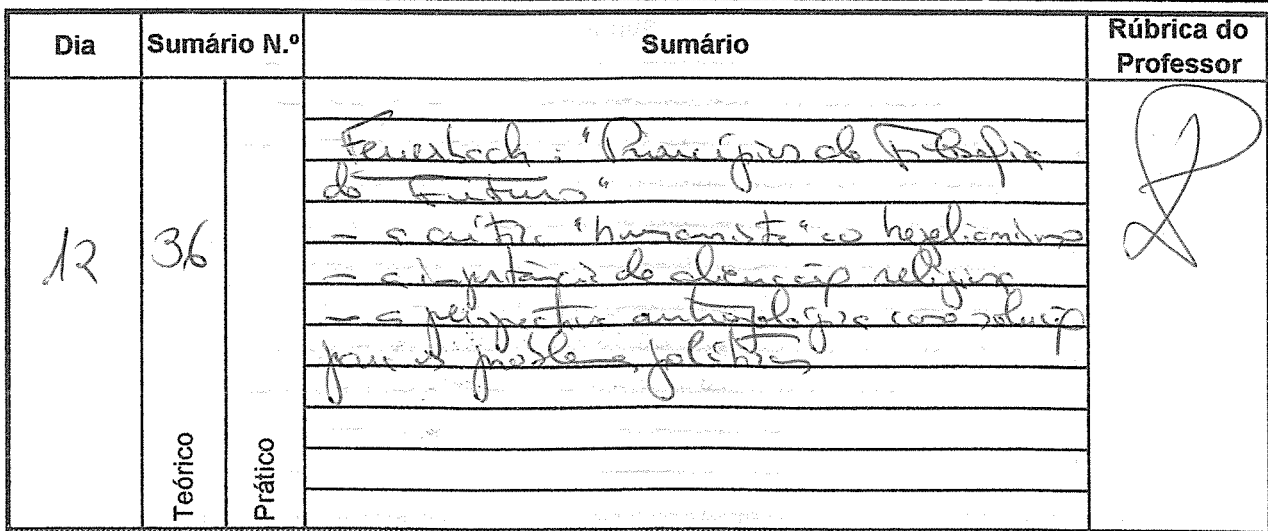 Dia Sumário N.º Sumário Rúbrica do Professor
12 36
Feuerbach: "Princípios da Filosofia
do Futuro"
- a crítica "humanista" ao hegelianismo
- a importância da alienação religiosa
- a perspectiva antropológica como solução
para os problemas políticos
Teórico Prático